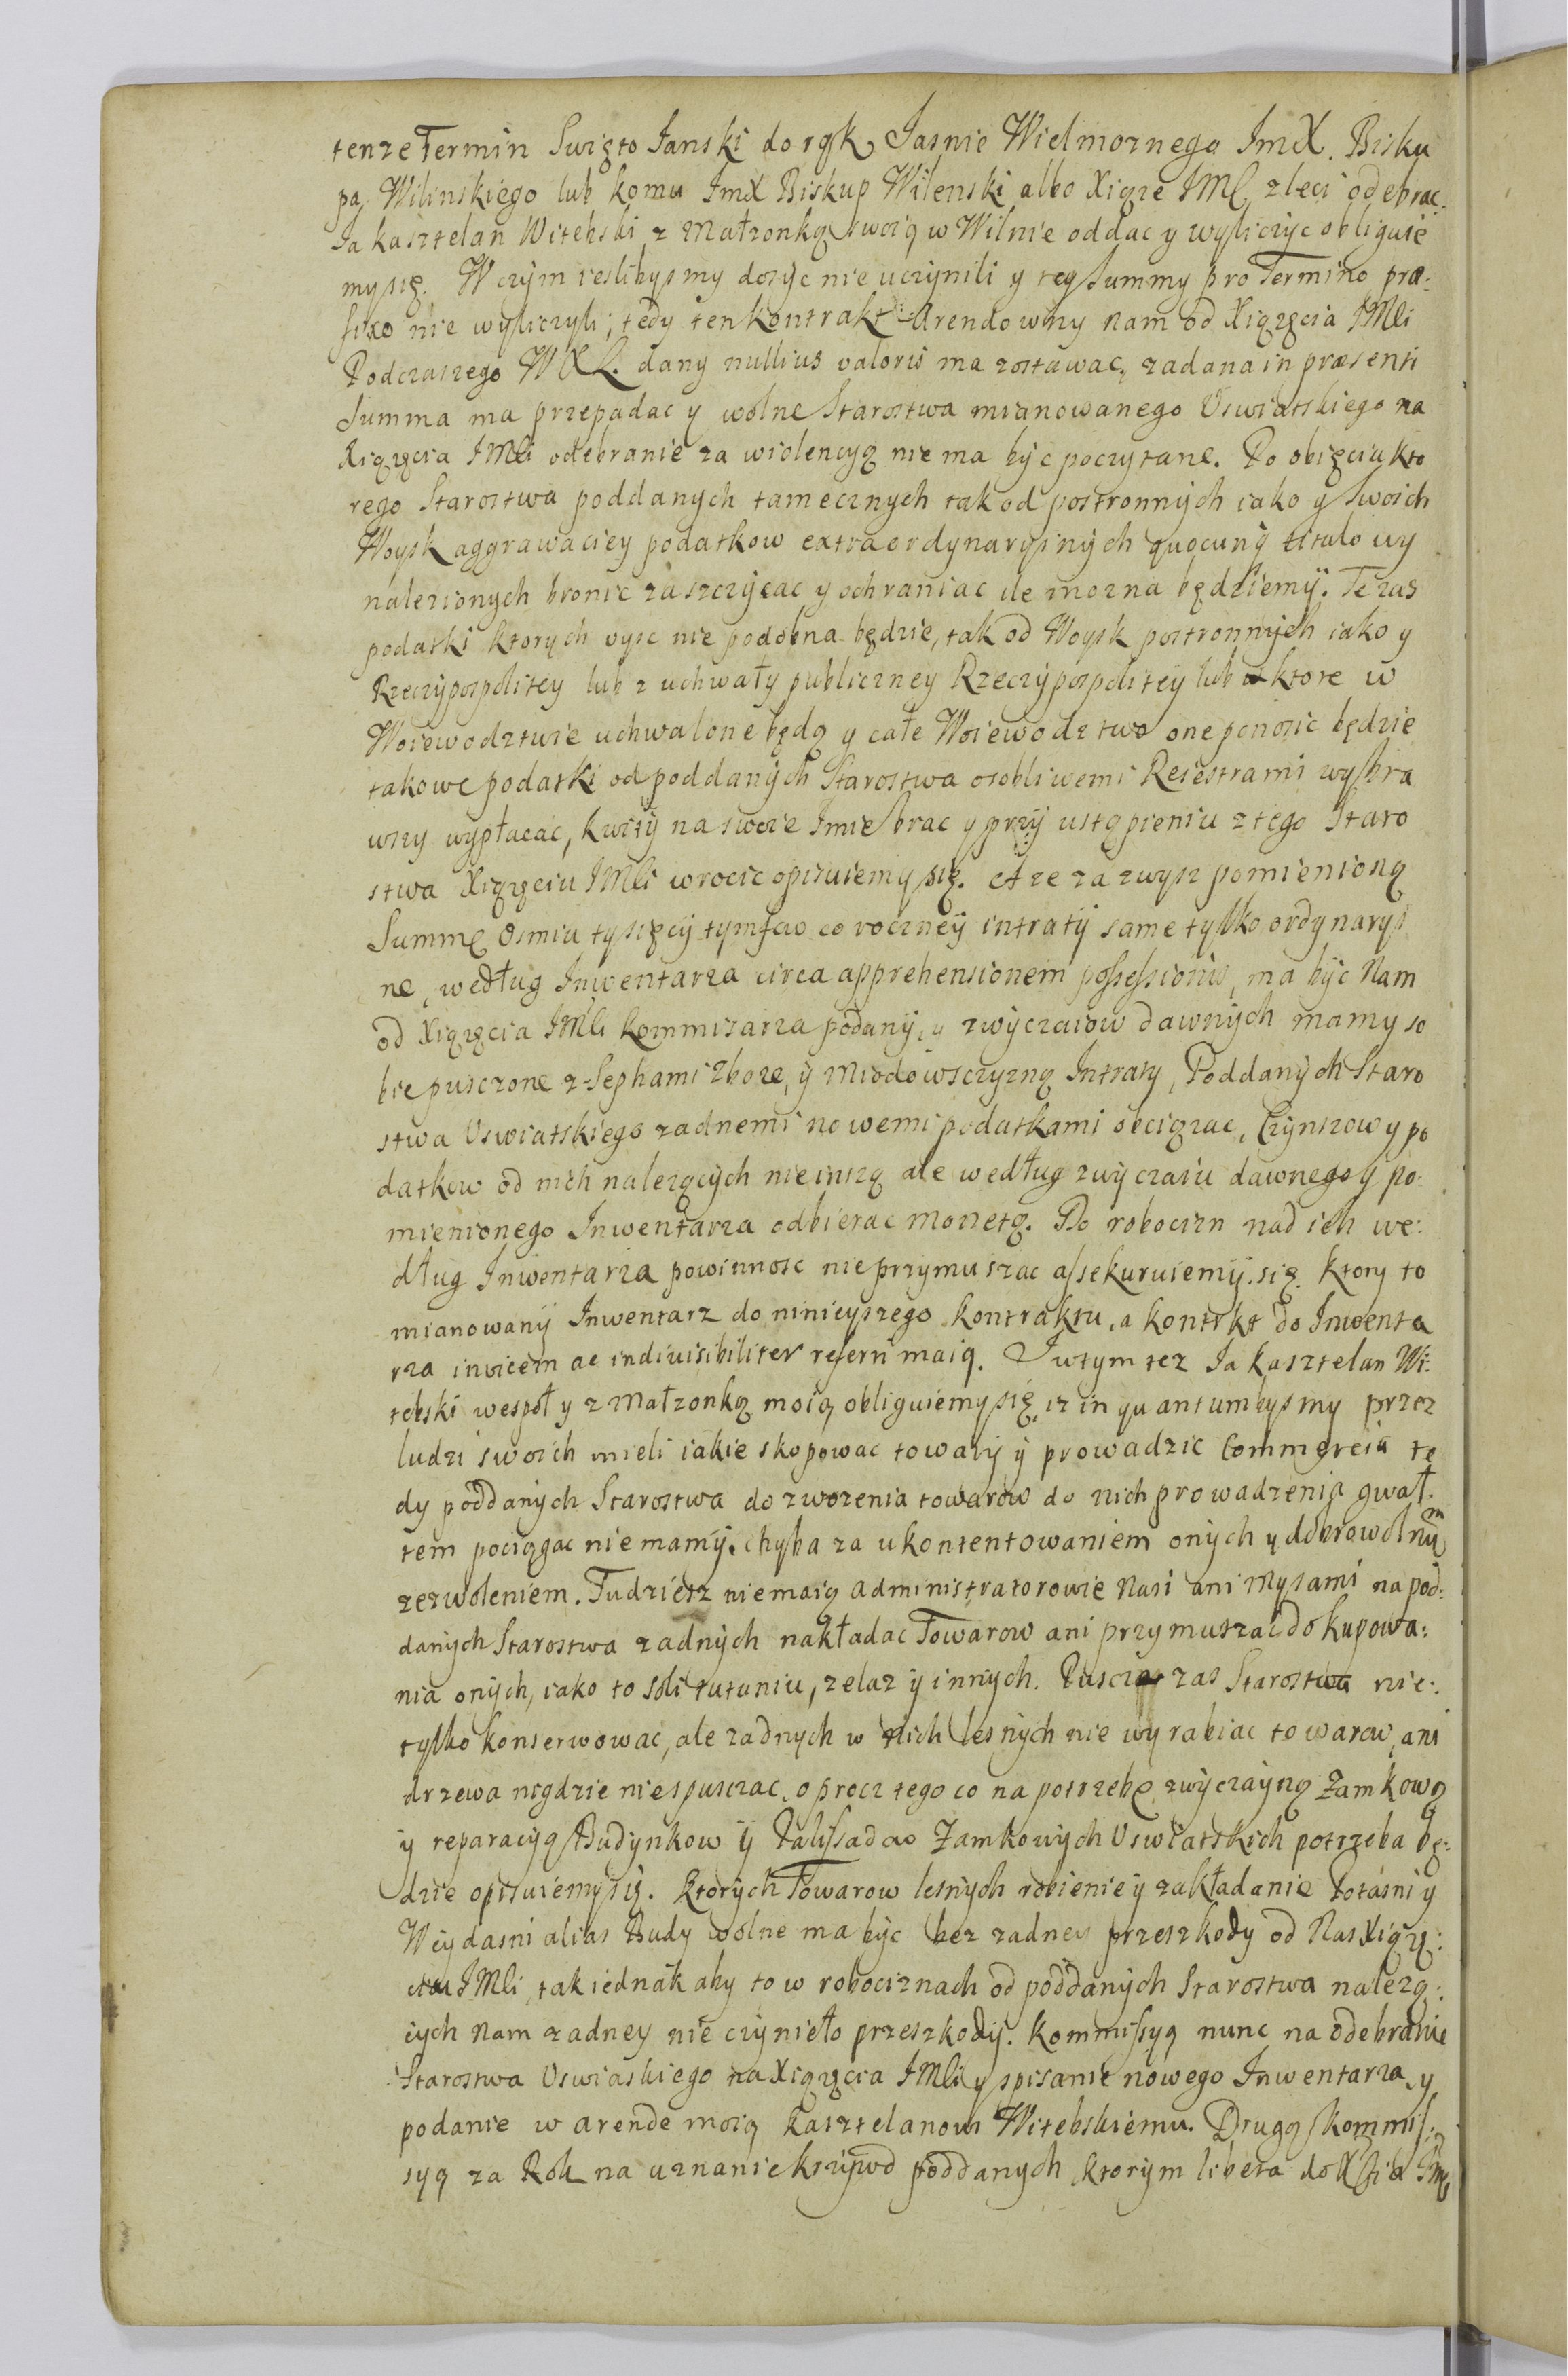 tenze Termin Swięto Janski do rąk Jasnie Wielmoznego ImX. Bisku
pa Wilinskiego lub komu ImX Biskup Wilenski albo Xiąze IMC zleci odebrac.
Ja kasztelan Witebski z Małzonką swoią w Wilnie oddac y wyliczyc obliguie
my się. W czym ieslibysmy dosyc nie uczynili y tey Summy pro Termino præ:
fixo nie wyliczyli; tedy ten kontrakt Arendowny nam od Xiązęcia IMći
Podczaszego WXL. dany nullius valoris ma zostawac, zadana in præsenti
Summa ma przepadac y wolne Starostwa mianowanego Uswiatskiego na
Xiązęcia IMći odebranie za wiolencyą nie ma byc poczytane. Po obięciu kto
rego Starostwa poddanych tamecznych tak od postronnych iako y swoich
Woysk aggrawaciey podatkow extraordynaryinych quocunq titulo wy
nalezionych bronic zaszczycac y ochraniac ile mozna będziemy. Te zas
podatki ktorych uysc nie podobna będzie, tak od Woysk postronnych iako y
Rzeczypospolitey lub z uchwały publiczney Rzeczypospolitey lub ktore w
Woiewodztwie uchwalone będą y całe Woiewodztwo one ponosic będzie
takowe podatki od poddanych Starostwa osobliwemi Reiestrami wybra
wszy wypłacac, kwity na swoie Imie brac y przy ustąpieniu z tego Staro
stwa Xiązęciu IMći wrocic opisuiemy się. A ze za zwysz pomienioną
Summę Osmiu tysięcy tymfow coroczney intraty same tylko ordynaryi
ne, według Inwentarza circa apprehensionem possessionis, ma byc Nam
od Xiązęcia IMći Kommisarza podany, y zwyczaiow dawnych mamy so
bie pusczone z Sephami zboze, y Miodowsczyzną Intraty, Poddanych Staro
stwa Uswiatskiego zadnemi nowemi podatkami obciązac, Czynszow y po
datkow od nich nalezących nie inszą ale według zwyczaiu dawnego y po:
mienionego Inwentarza odbierac monetą. Do robocizn nad ich we:
dług Inwentarza powinnosc nie przymuszac assekuruiemy się. Ktory to
mianowany Inwentarz do ninieyszego kontraktu, a kontrkt do Inwenta
rza invicem ac indiuisibiliter referri maią. I w tym tez Ja kasztelan Wi:
tebski wespoł y z Małzonką moią obliguiemy się, iz in quantum bysmy przez
ludzi swoich mieli iakie skopowac towary y prowadzic Commercia te
dy poddanych Starostwa do zwozenia towarow do nich prowadzenia gwał:
tem pociągac nie mamy. chyba za ukontentowaniem onych y dobrowolnym
zezwoleniem. Tudziesz nie maią Administratorowie Nasi ani My sami na pod:
danych Starostwa zadnych nakładac Towarow ani przymuszac do kupowa:
nia onych, iako to soli tutuniu, zelaz y innych. Puscze zas Starostwa nie:
tylko konserwowac, ale zadnych w nich lesnych nie wyrabiac towarow, ani
drzewa nigdzie nie spusczac, oprocz tego co na potrzebę zwyczayną Zamkową
y reparacyą Budynkow y Palissadow Zamkowych Uswiatskich potrzeba bę:
dzie opisuiemy się. Ktorych Towarow lesnych robienie y zakładanie Potasni y
Weydasni alias Budy wolne ma byc bez zadney przeszkody od Nas Xiązę:
ciu IMći, tak iednak aby to w robociznach od poddanych Starostwa nalezą:
cych Nam zadney nie czyniło przeszkody. Kommissyą nunc na odebranie
Starostwa Uswiaskiego na Xiązęcia IMći y spisanie nowego Inwentarza, y
podanie w arende moią Kasztelanowi Witebskiemu. Drugą Kommis:
syą za Rok na uznanie krzywd poddanych ktorym libera do Xcia Im